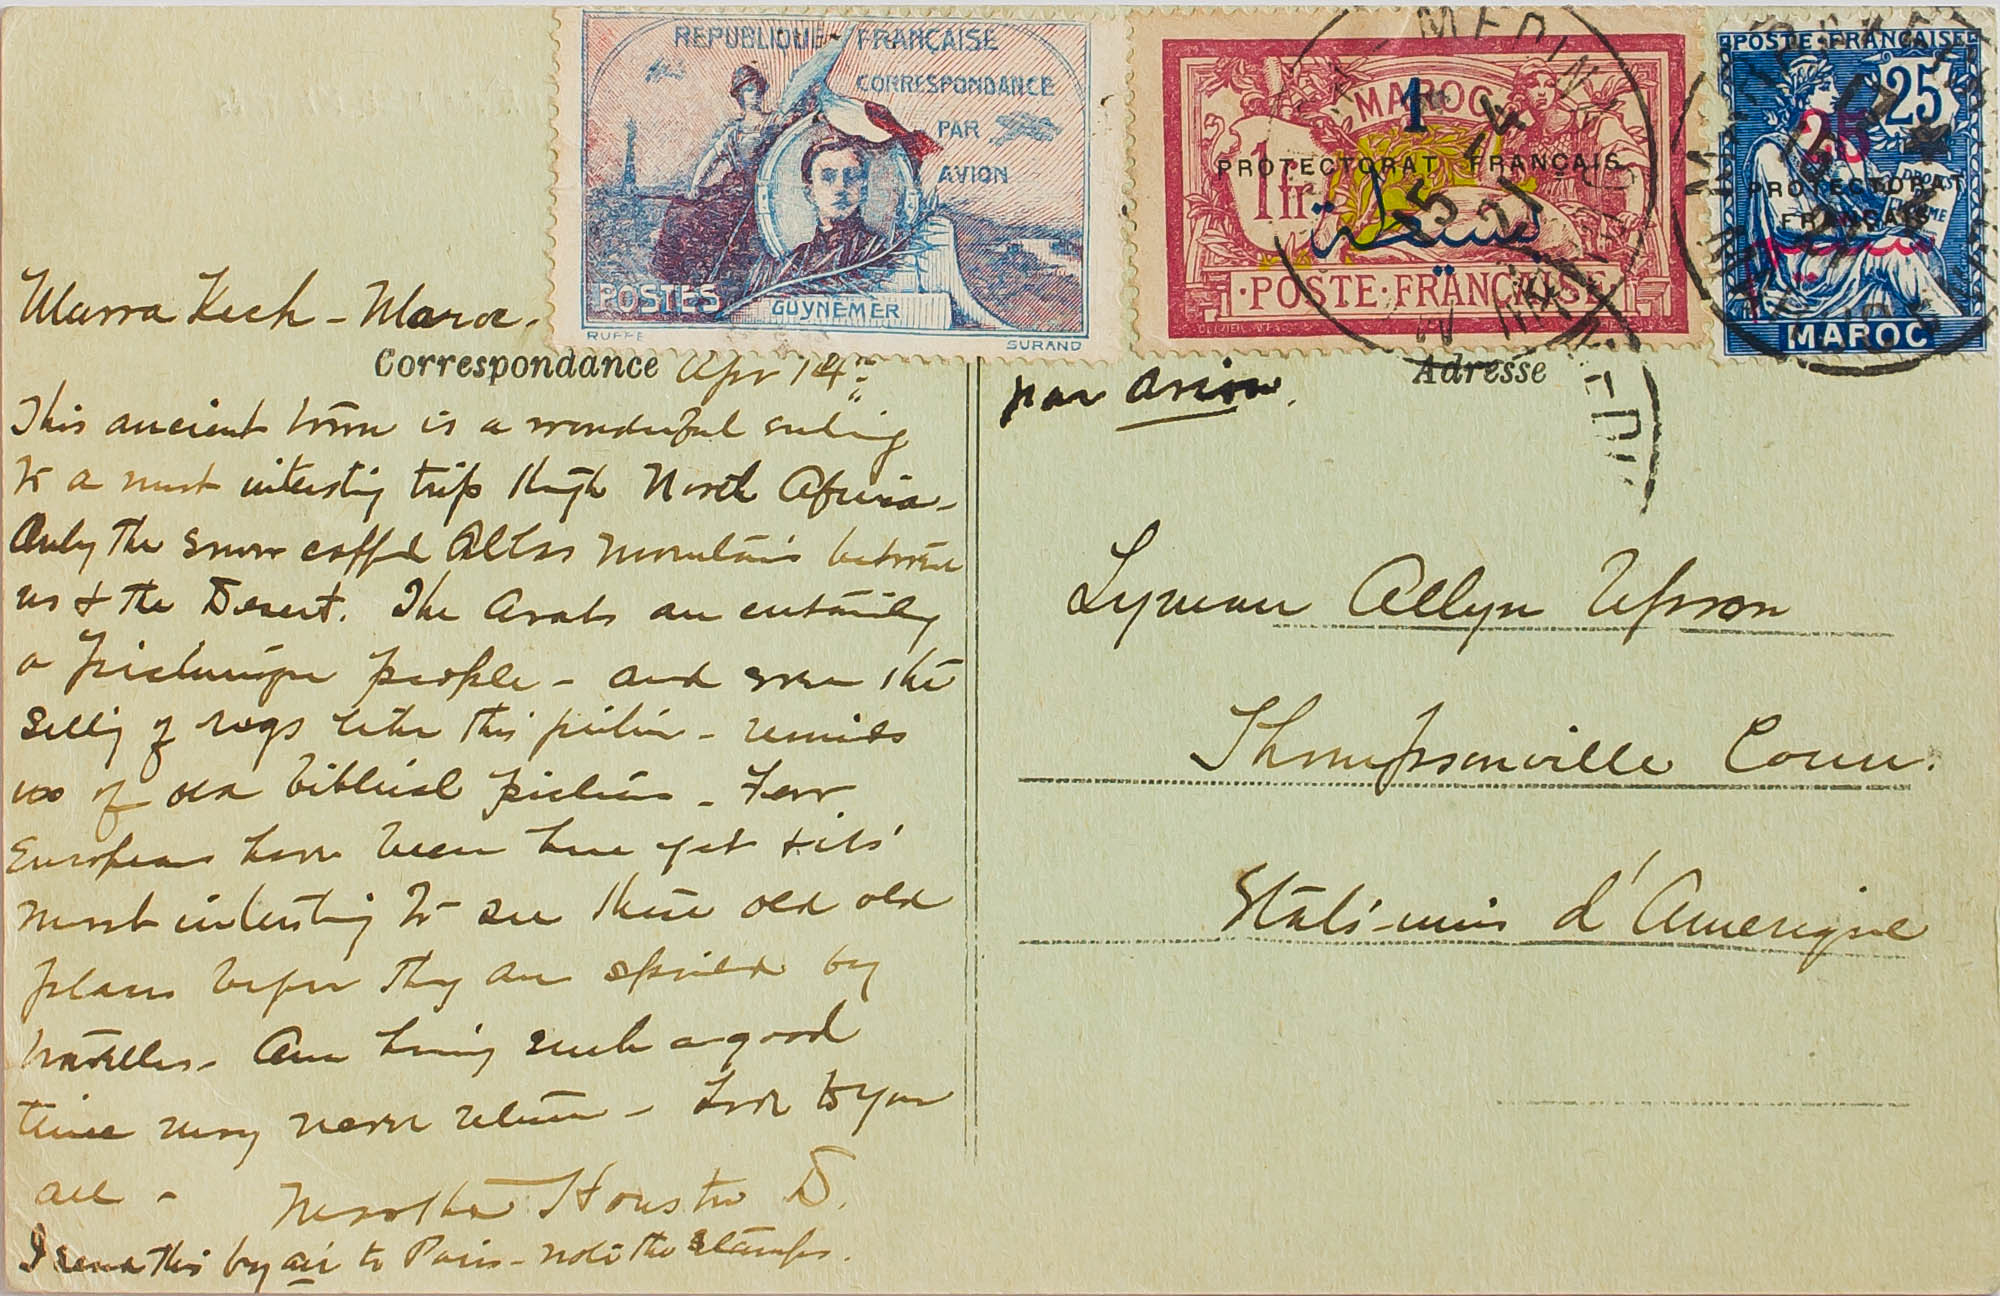 REPUBLIQUE FRANÇAISE
CORRESPONDANCE
PAR
AVION
POSTES
GUYNEMER
RUFFE
SURAND
MAROC
1
PROTECTORAT FRANÇAIS
1fr
بسيطة
POSTE FRANÇAISE
POSTE FRANÇAISE
25
25
PROTECTORAT
FRANÇAIS
MAROC
MEDINA
Marra Kech - Maroc.
Correspondance Apr 14th
This ancient town is a wonderful ending
to a most interesting trip through North Africa -
Only the snow capp'd Atlas Mountains between
us & the Desert. The Arabs are certainly
a picturesque people - and even the
selling of rugs like this picture - reminds
one of old biblical pictures - Few
Europeans have been here yet & it's
most interesting to see these old old
places before they are spoiled by
travellers - Am having such a good
time may never return - Love to you
all - Martha Houston D.
I send this by air to Paris - note the stamps.
Adresse
par avion.
Lyman Allyn Upson
Thompsonville Conn.
Etats-unis d'Amerique